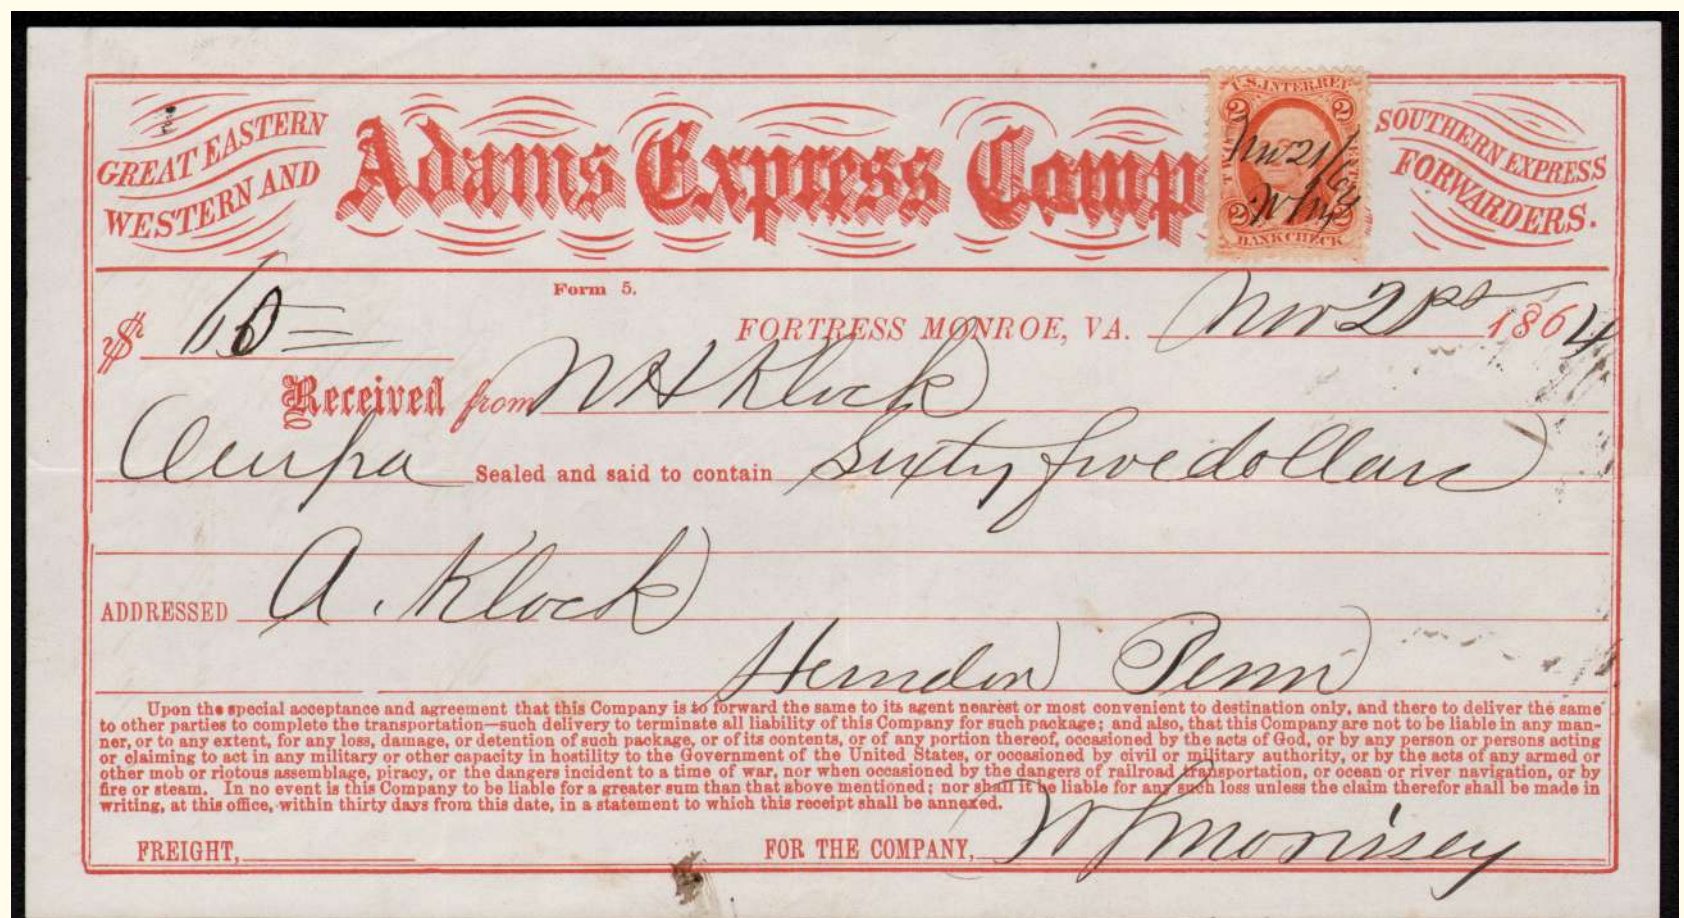 GREAT EASTERN
WESTERN AND
Adams Express Comp
SOUTHERN EXPRESS
FORWARDERS.
U.S. INTER. REV.
2 2
Nov 21/64
2 2
BANK CHECK
Form 5.
$
FORTRESS MONROE, VA. Nov 21st 1864
Received from W H Klock
Sealed and said to contain Sixty five dollars
ADDRESSED A. Klock
Herndon Penn
Upon the special acceptance and agreement that this Company is to forward the same to its agent nearest or most convenient to destination only, and there to deliver the same
to other parties to complete the transportation—such delivery to terminate all liability of this Company for such package; and also, that this Company are not to be liable in any man-
ner, or to any extent, for any loss, damage, or detention of such package, or of its contents, or of any portion thereof, occasioned by the acts of God, or by any person or persons acting
or claiming to act in any military or other capacity in hostility to the Government of the United States, or occasioned by civil or military authority, or by the acts of any armed or
other mob or riotous assemblage, piracy, or the dangers incident to a time of war, nor when occasioned by the dangers of railroad transportation, or ocean or river navigation, or by
fire or steam. In no event is this Company to be liable for a greater sum than that above mentioned; nor shall it be liable for any such loss unless the claim therefor shall be made in
writing, at this office, within thirty days from this date, in a statement to which this receipt shall be annexed.
FREIGHT,
FOR THE COMPANY, W J Morrisey